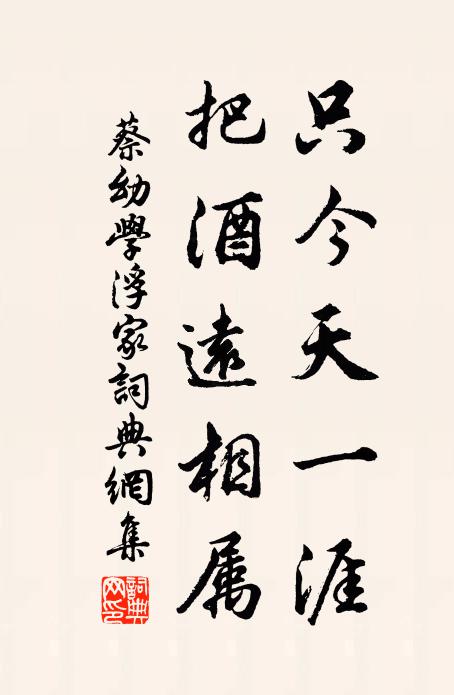 只今天一涯
把酒遠相属
蔡幼學浮家詞典網集
詞典
网印